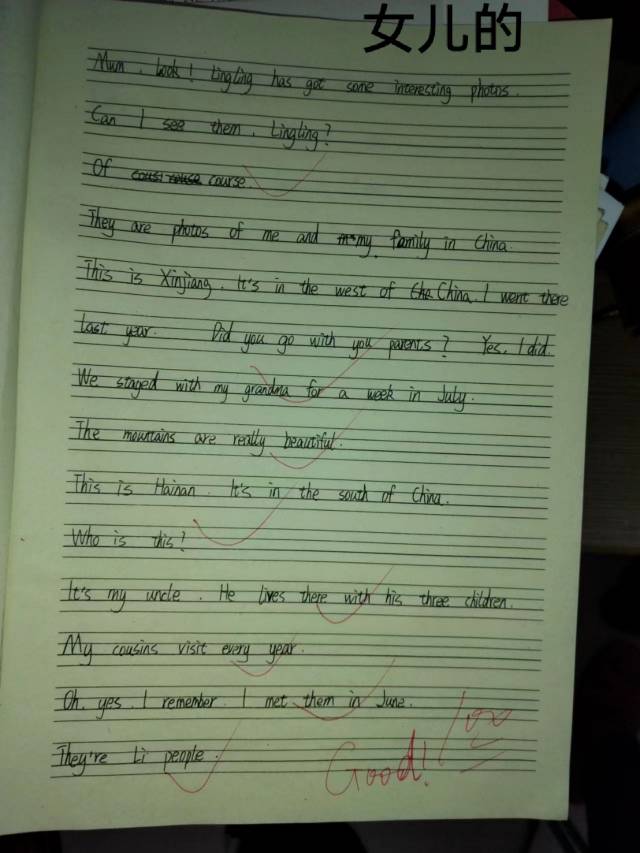 女儿的
Mum, look! Lingling has got some interesting photos.
Can I see them, Lingling?
Of course.
They are photos of me and my family in China.
This is Xinjiang. It's in the west of China. I went there
last year. Did you go with you parents? Yes, I did.
We stayed with my grandma for a week in July.
The mountains are really beautiful.
This is Hainan. It's in the south of China.
Who is this?
It's my uncle. He lives there with his three children.
My cousins visit every year.
Oh, yes. I remember. I met them in June.
They're Li people.
Good! 100